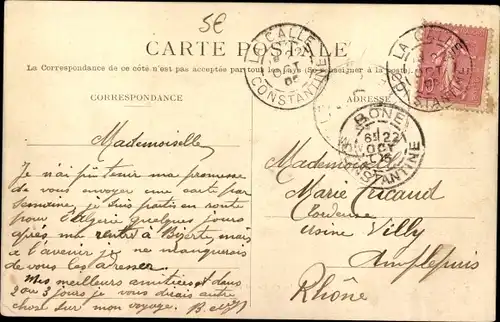 5E
CARTE POSTALE
La Correspondance de ce côté n'est pas acceptée par tous les pays (Se renseigner à la poste.)
CORRESPONDANCE
ADRESSE
LA CALLE
OCT
05
CONSTANTINE
LA CALLE
OCT
05
CONSTANTINE
BONE
22
OCT
05
CONSTANTINE
Mademoiselle
Je n'ai pu tenir ma promesse
de vous envoyer une carte par
semaine, je suis parti en route
pour l'Algerie quelques jours
après ma rentré à Bizerte, mais
a l'avenir je ne manquerais
de vous les adresser.
Mes meilleurs amitiées et dans
2 ou 3 jours je vous dirais autre
chose sur mon voyage.
Mademoiselle
Marie
Usine Villy
Amplepuis
Rhône